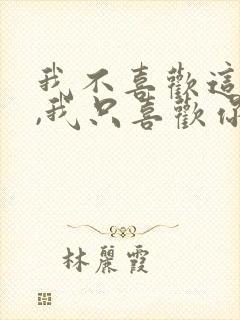 我不喜歡這
,我只喜歡你
林麗霞